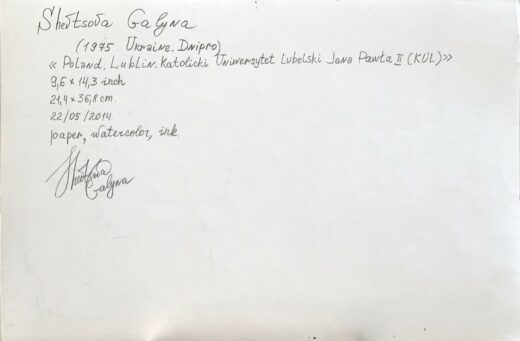 Shevtsova Galyna
(1975. Ukraine. Dnipro)
« Poland, Lublin. Katolicki Uniwersytet Lubelski Jana Pawła II (KUL)»
9,6 x 14,3 inch
21,4 x 36,8 cm
22/05/2014.
paper, watercolor, ink.
Shevtsova
Galyna